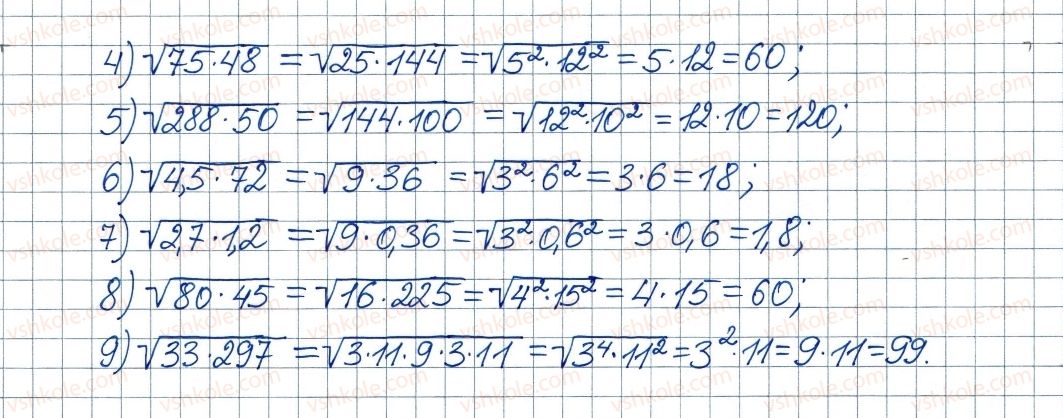 4) √75·48 = √25·144 = √5²·12² = 5·12 = 60;
5) √288·50 = √144·100 = √12²·10² = 12·10 = 120;
6) √4,5·72 = √9·36 = √3²·6² = 3·6 = 18;
7) √2,7·1,2 = √9·0,36 = √3²·0,6² = 3·0,6 = 1,8;
8) √80·45 = √16·225 = √4²·15² = 4·15 = 60;
9) √33·297 = √3·11·9·3·11 = √3⁴·11² = 3²·11 = 9·11 = 99.
vshkole.com